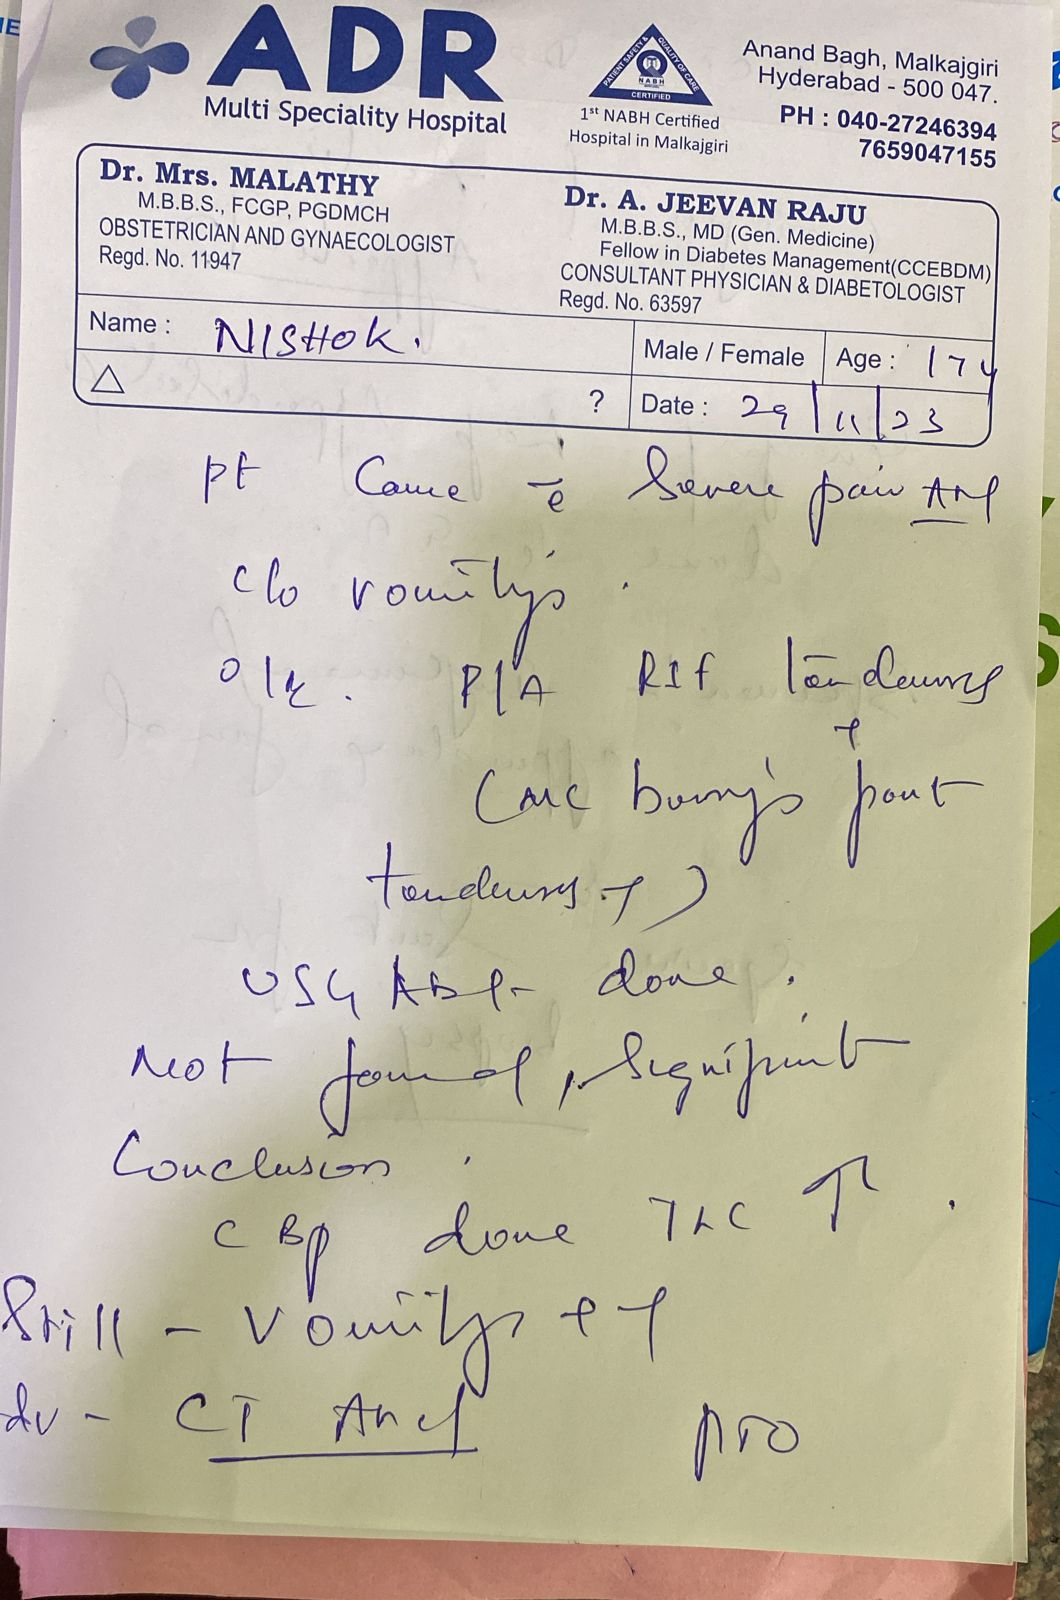 ADR
Multi Speciality Hospital
PATIENT SAFETY & QUALITY OF CARE
NABH
CERTIFIED
1st NABH Certified
Hospital in Malkajgiri
Anand Bagh, Malkajgiri
Hyderabad - 500 047.
PH : 040-27246394
7659047155
Dr. Mrs. MALATHY
M.B.B.S., FCGP, PGDMCH
OBSTETRICIAN AND GYNAECOLOGIST
Regd. No. 11947
Dr. A. JEEVAN RAJU
M.B.B.S., MD (Gen. Medicine)
Fellow in Diabetes Management(CCEBDM)
CONSULTANT PHYSICIAN & DIABETOLOGIST
Regd. No. 63597
Name : NISHOK.
Male / Female Age : 17y
△ ? Date : 29/11/23
pt Came c̄ Severe pain
c/o vomitings.
O/E. P/A RIF tenderness
+
(Mc burny's point
tenderness +)
USG Abd - done.
Not found, significant
Conclusion.
CBP done TLC ↑.
Still - Vomitings ++
Adv - CT Abd PTO